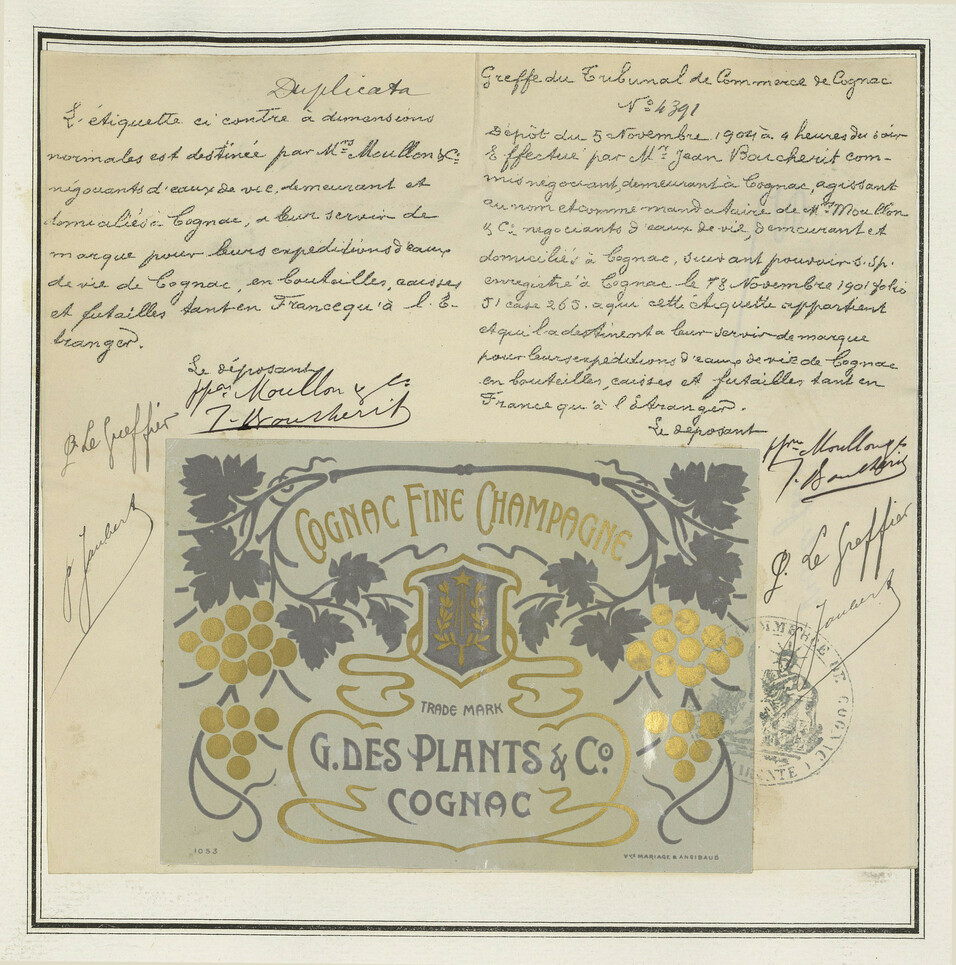 Duplicata
L'étiquette ci contre à dimensions
normales est destinée par Mrs Moullon & Cie
négociants d'eaux de vie, demeurant et
domiciliés à Cognac, a leur servir de
marque pour leurs expéditions d'eaux
de vie de Cognac, en bouteilles, caisses
et futailles tant en France qu'à l'É-
tranger.
Le déposant
ppon Moullon & Co
J. Boucherit
P. Le Greffier
P. Jaubert
Greffe du Tribunal de Commerce de Cognac
No 4391
Dépôt du 5 Novembre 1904 à 4 heures du soir
Effectué par Mr Jean Boucherit com-
mis négociant, demeurant à Cognac, agissant
au nom et comme mandataire de Mrs Moullon
& Cie négociants d'eaux de vie, demeurant et
domiciliés à Cognac, suivant pouvoir s. sp.
enregistré à Cognac le Novembre 1901 folio
51 case 265. a qui cette étiquette appartient
et qui la destinent a leur servir de marque
pour leurs expéditions d'eaux de vie de Cognac
en bouteilles, caisses et futailles tant en
France qu'à l'Étranger.
Le déposant
ppon Moullon & Co
J. Boucherit
P. Le Greffier
Jaubert
COGNAC FINE CHAMPAGNE
TRADE MARK
G. DES PLANTS & Co.
COGNAC
1053
VVE MARIAGE & ANSIBAUD
COMMERCE DE COGNAC
CHARENTE